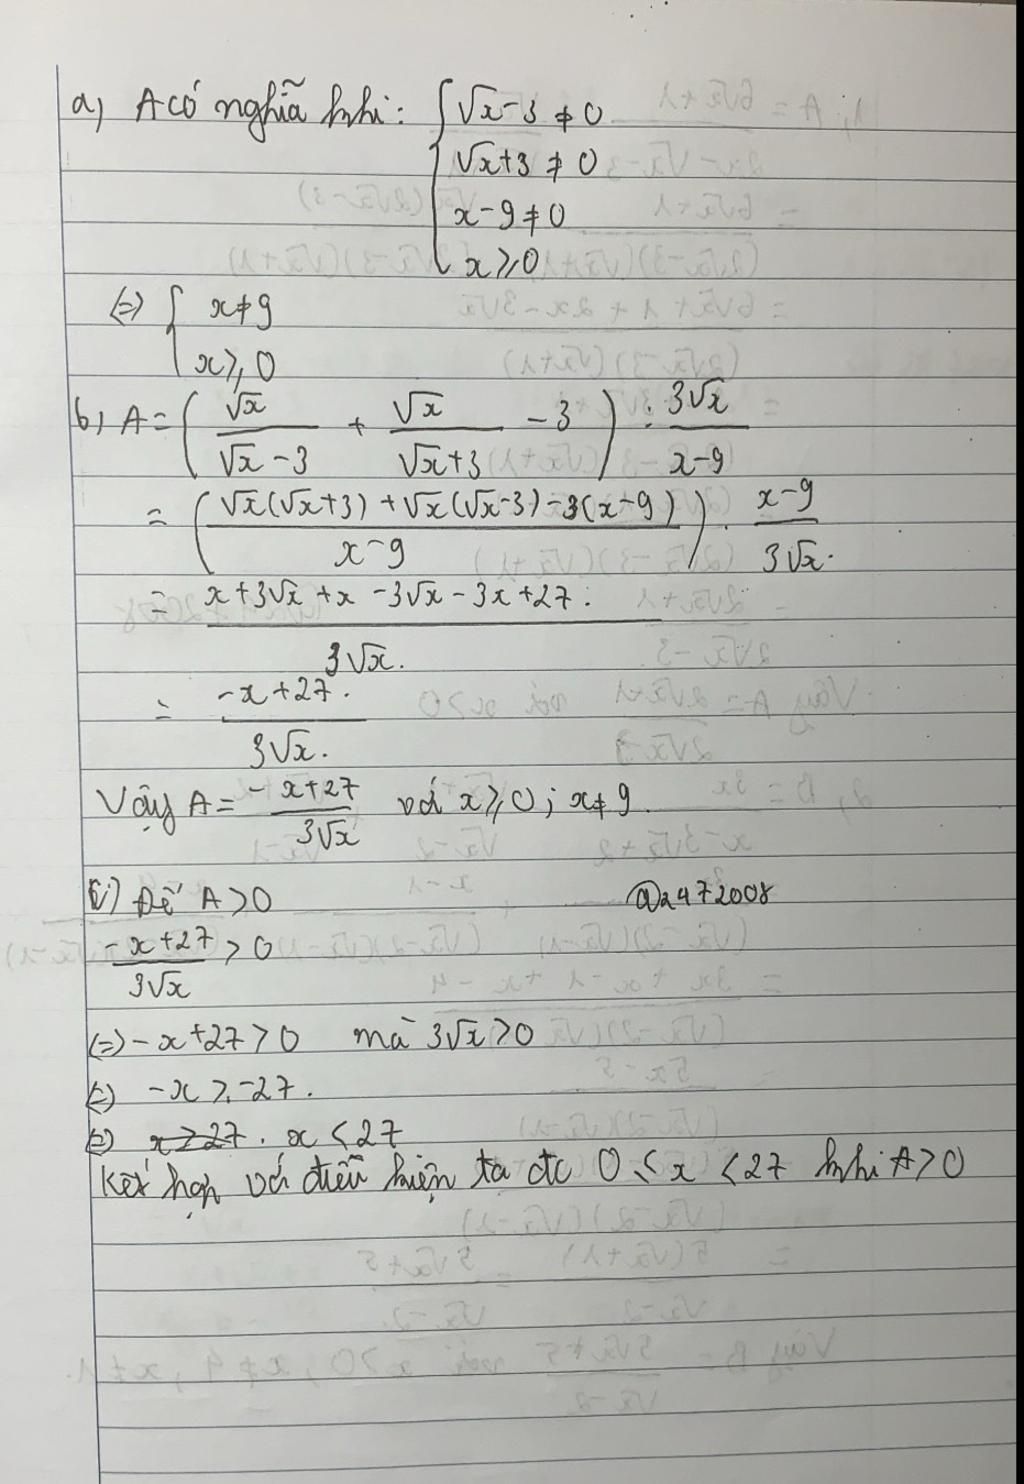 a, A có nghĩa khi: { √x - 3 ≠ 0
√x + 3 ≠ 0
x - 9 ≠ 0
x ≥ 0
(=) { x ≠ 9
x ≥ 0
b, A = ( √x / (√x - 3) + √x / (√x + 3) - 3 ) : 3√x / (x - 9)
= ( (√x(√x + 3) + √x(√x - 3) - 3(x - 9)) / (x - 9) ) . (x - 9) / 3√x.
= (x + 3√x + x - 3√x - 3x + 27) / 3√x.
= (-x + 27) / 3√x.
Vậy A = (-x + 27) / 3√x với x ≥ 0 ; x ≠ 9.
c) Để A > 0
@2472008
(-x + 27) / 3√x > 0
(=) -x + 27 > 0 mà 3√x > 0
(=) -x > -27.
(=) x > 27 . x < 27
Kết hợp với điều kiện ta đc 0 < x < 27 khi A > 0